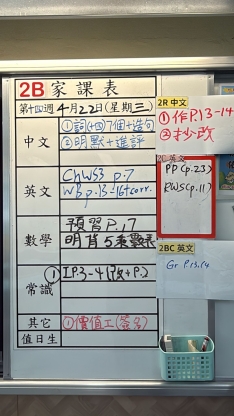 2B 家課表
第十四週 4月22日(星期三)
中文
①詞(十四)7個+造句
②明默+進評
英文
ChWS3 p.7
WB p.13-16+corr.
數學
預習P.17
明背5乘數表
常識
其它
①價值工(簽名)
值日生
2R 中文
①作P.13-14
②抄改
2B 英文
PP(p.23)
RWS(p.11)
2BC 英文
Gr P.13,14